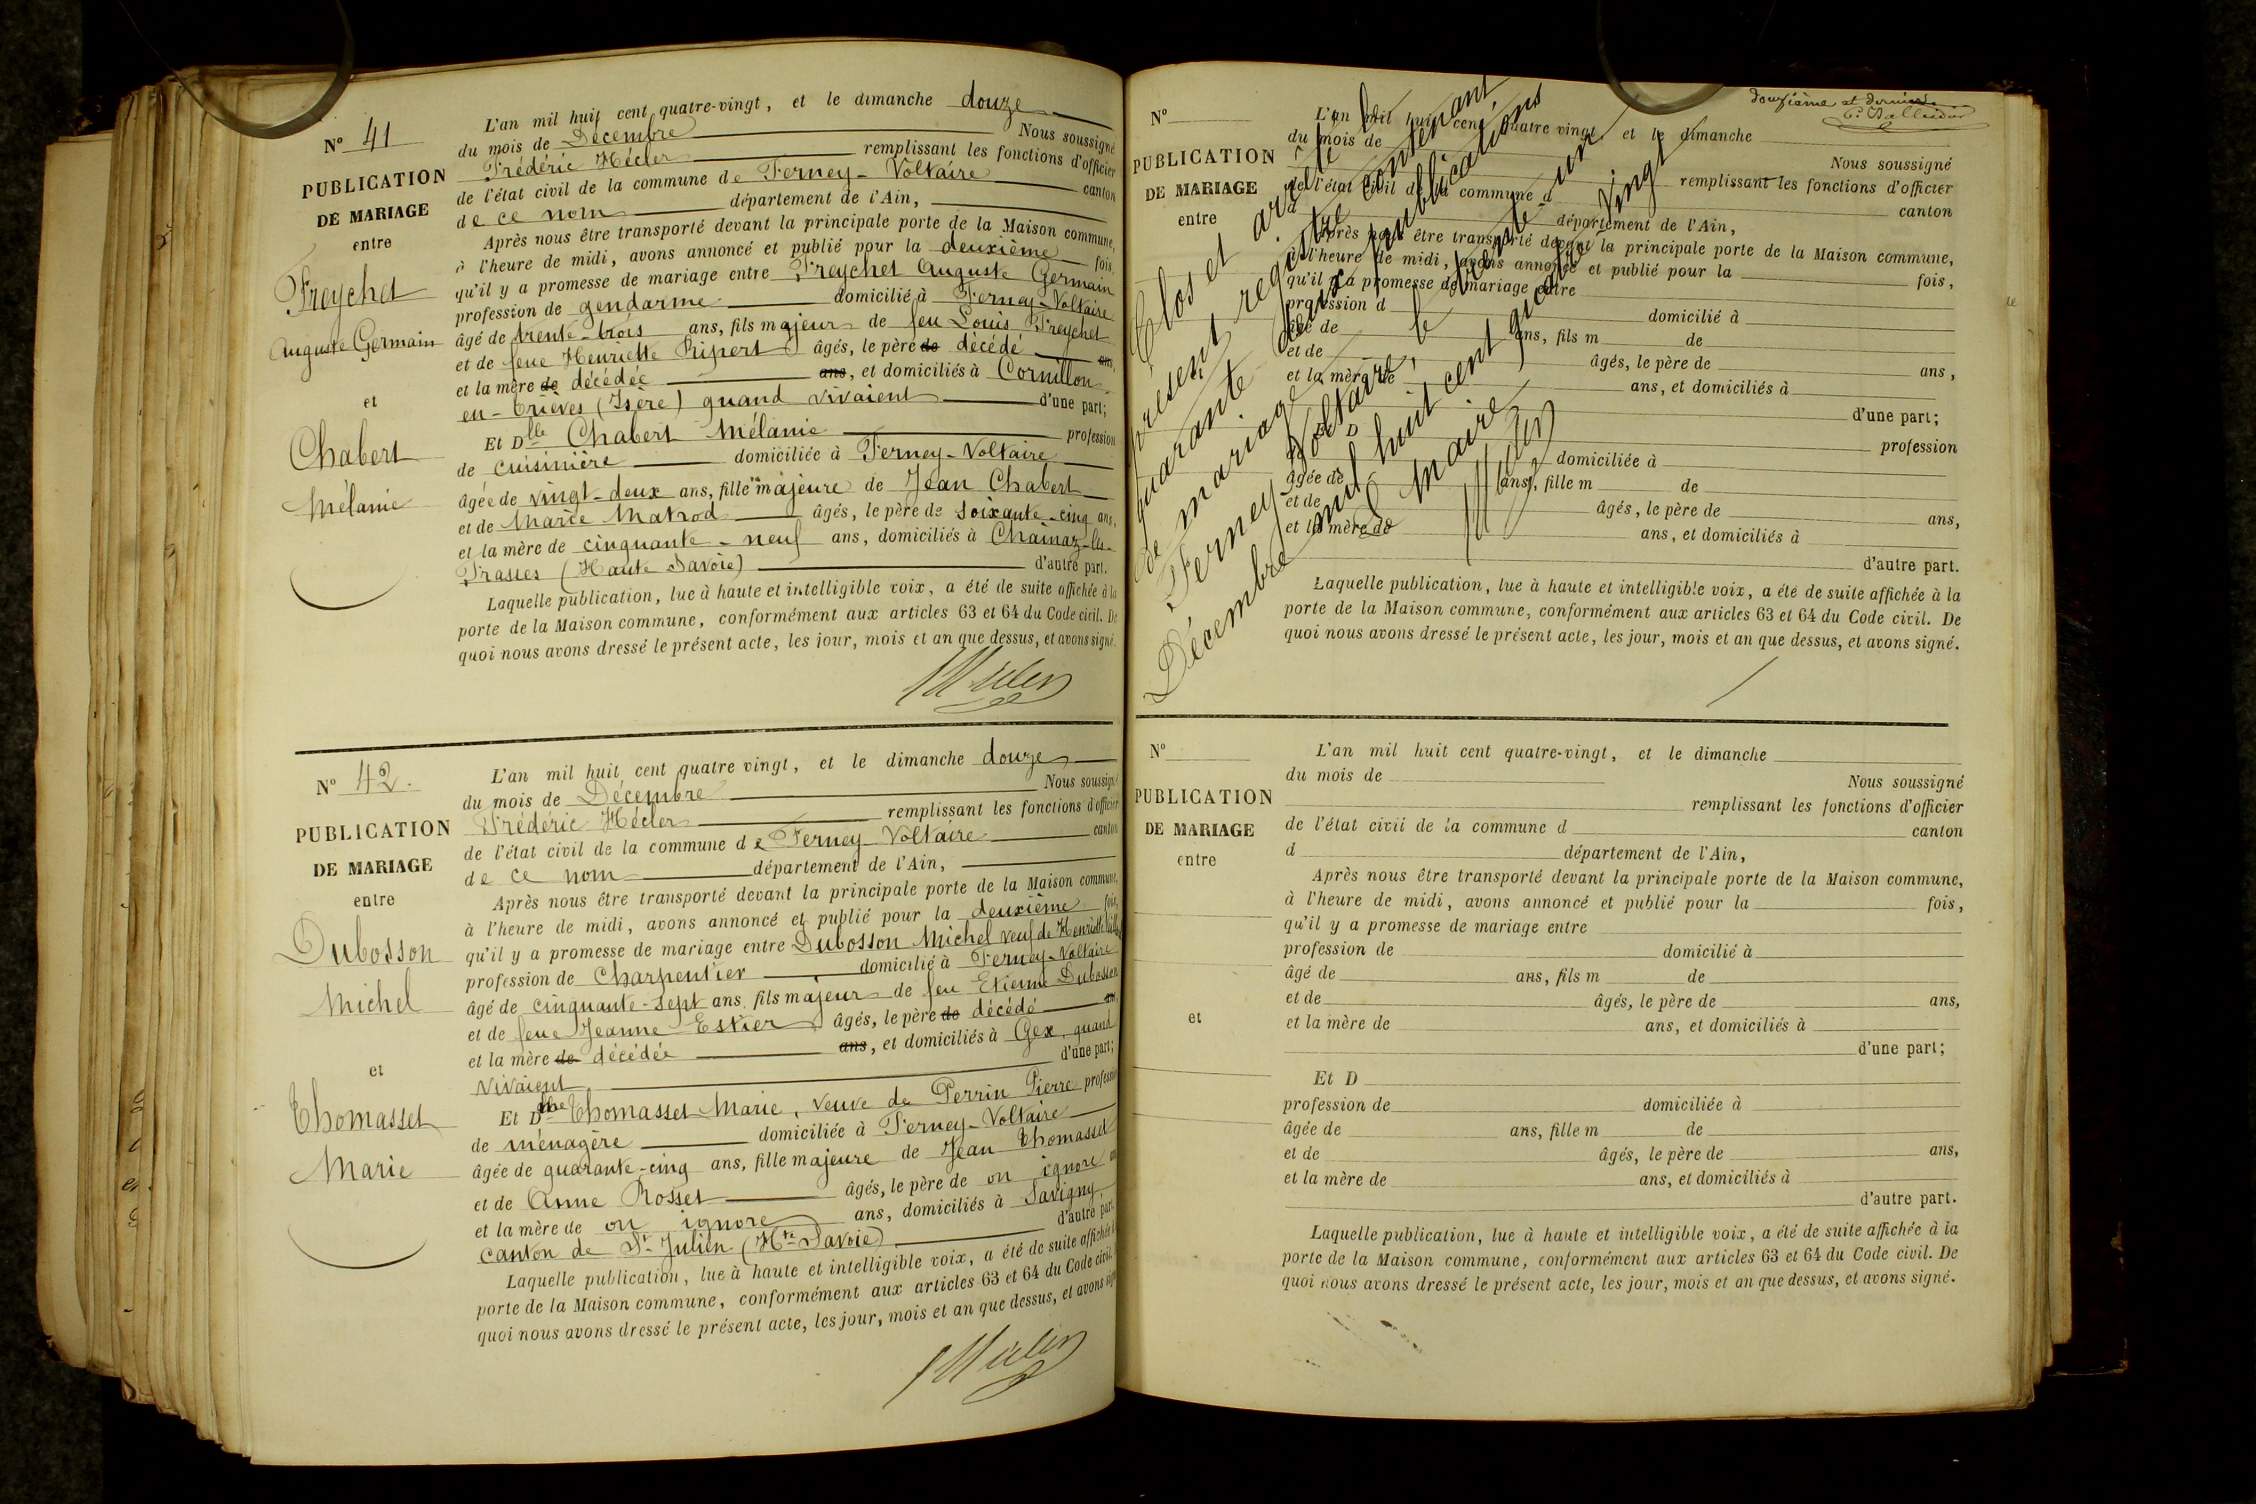 Nº 41
PUBLICATION
DE MARIAGE
entre
Freychet
Auguste Germain
et
Chabert
Mélanie
L'an mil huit cent quatre-vingt, et le dimanche douze
du mois de Décembre Nous soussigné
Frédéric Hécler remplissant les fonctions d'officier
de l'état civil de la commune de Ferney-Voltaire canton
de ce nom département de l'Ain,
Après nous être transporté devant la principale porte de la Maison commune,
à l'heure de midi, avons annoncé et publié pour la deuxième fois,
qu'il y a promesse de mariage entre Freychet Auguste Germain
profession de gendarme domicilié à Ferney-Voltaire
âgé de trente-trois ans, fils majeur de feu Louis Freychet
et de feue Henriette Ripert âgés, le père de décédé ans,
et la mère de décédée ans, et domiciliés à Cornillon-
en-Trièves (Isère) quand vivaient d'une part;
Et Dlle Chabert Mélanie profession
de cuisinière domiciliée à Ferney-Voltaire
âgée de vingt-deux ans, fille majeure de Jean Chabert
et de Marie Matrod âgés, le père de soixante-cinq ans,
et la mère de cinquante-neuf ans, domiciliés à Chainaz-les-
Frasses (Haute Savoie) d'autre part.
Laquelle publication, lue à haute et intelligible voix, a été de suite affichée à la
porte de la Maison commune, conformément aux articles 63 et 64 du Code civil. De
quoi nous avons dressé le présent acte, les jour, mois et an que dessus, et avons signé.
Nº 42.
PUBLICATION
DE MARIAGE
entre
Dubosson
Michel
et
Thomasset
Marie
L'an mil huit cent quatre vingt, et le dimanche douze
du mois de Décembre Nous soussigné
Frédéric Hécler remplissant les fonctions d'officier
de l'état civil de la commune de Ferney Voltaire canton
de ce nom département de l'Ain,
Après nous être transporté devant la principale porte de la Maison commune,
à l'heure de midi, avons annoncé et publié pour la deuxième fois,
qu'il y a promesse de mariage entre Dubosson Michel veuf de Henriette
profession de Charpentier domicilié à Ferney-Voltaire
âgé de cinquante-sept ans, fils majeur de feu Etienne Dubosson
et de feue Jeanne Estier âgés, le père de décédé ans,
et la mère de décédée ans, et domiciliés à Gex, quand
vivaient d'une part;
Et Dlle Thomasset Marie, veuve de Perrin Pierre profession
de ménagère domiciliée à Ferney-Voltaire
âgée de quarante-cinq ans, fille majeure de Jean Thomasset
et de Anne Rosset âgés, le père de on ignore ans
et la mère de on ignore ans, domiciliés à Savigny,
canton de St Julien (Hte Savoie) d'autre part.
Laquelle publication, lue à haute et intelligible voix, a été de suite affichée à la
porte de la Maison commune, conformément aux articles 63 et 64 du Code civil.
quoi nous avons dressé le présent acte, les jour, mois et an que dessus, et avons signé
douzième et dernier
Nº
PUBLICATION
DE MARIAGE
entre
L'an mil huit cent quatre vingt, et le dimanche
du mois de Nous soussigné
remplissant les fonctions d'officier
de l'état civil de la commune d canton
d département de l'Ain,
Après nous être transporté devant la principale porte de la Maison commune,
à l'heure de midi, avons annoncé et publié pour la fois,
qu'il y a promesse de mariage entre
profession d domicilié à
âgé de ans, fils m de
et de âgés, le père de ans,
et la mère de ans, et domiciliés à
d'une part;
Et D profession
domiciliée à
âgée de ans, fille m de
et de âgés, le père de ans,
et la mère de ans, et domiciliés à
d'autre part.
Laquelle publication, lue à haute et intelligible voix, a été de suite affichée à la
porte de la Maison commune, conformément aux articles 63 et 64 du Code civil. De
quoi nous avons dressé le présent acte, les jour, mois et an que dessus, et avons signé.
Clos et arrêté le
présent registre contenant
quarante deux publications
de mariage
Ferney-Voltaire, le trente un
Décembre mil huit cent quatre vingt
Le Maire
Nº
PUBLICATION
DE MARIAGE
entre
et
L'an mil huit cent quatre-vingt, et le dimanche
du mois de Nous soussigné
remplissant les fonctions d'officier
de l'état civil de la commune d canton
d département de l'Ain,
Après nous être transporté devant la principale porte de la Maison commune,
à l'heure de midi, avons annoncé et publié pour la fois,
qu'il y a promesse de mariage entre
profession de domicilié à
âgé de ans, fils m de
et de âgés, le père de ans,
et la mère de ans, et domiciliés à
d'une part;
Et D
profession de domiciliée à
âgée de ans, fille m de
et de âgés, le père de ans,
et la mère de ans, et domiciliés à
d'autre part.
Laquelle publication, lue à haute et intelligible voix, a été de suite affichée à la
porte de la Maison commune, conformément aux articles 63 et 64 du Code civil. De
quoi nous avons dressé le présent acte, les jour, mois et an que dessus, et avons signé.